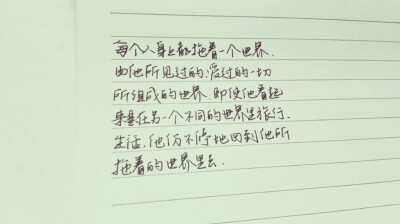 每个人身上都拖着一个世界.
由他所见过的,爱过的一切
所组成的世界.即使他看起
来是在另一个不同的世界里旅行.
生活,他仍不停地回到他所
拖着的世界里去.